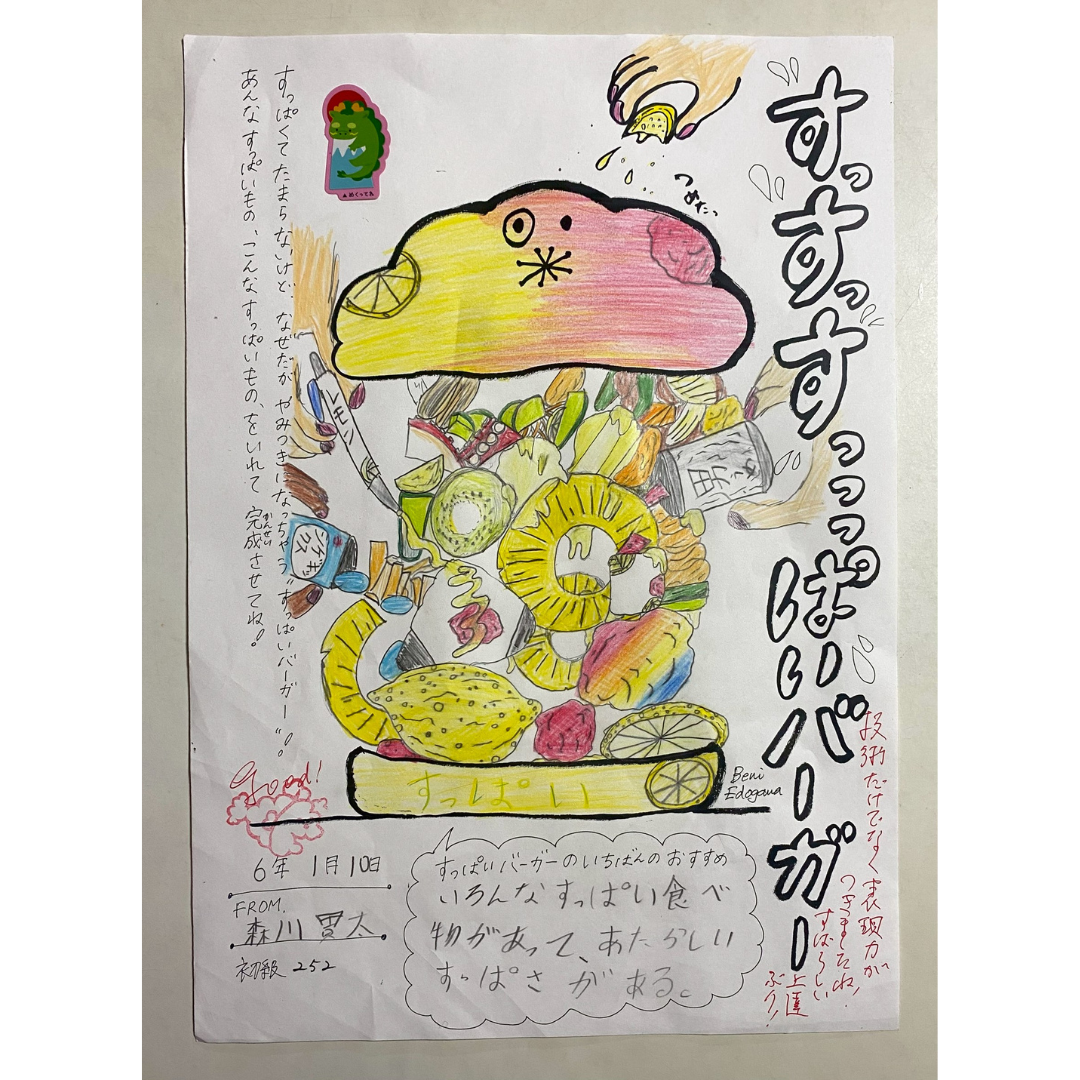 すっすっすっっっぱいバーガー
つめたっ
すっぱくてたまらないけど、なぜだかやみつきになっちゃう"すっぱいバーガー"。
あんなすっぱいもの、こんなすっぱいもの、をいれて完成させてね!
かんせい
▲めくってみ
レモン
すっぱい
Beni
Edogawa
good!
6年 1月10日
FROM.
森川貫太
初級 252
すっぱいバーガーのいちばんのおすすめ
いろんなすっぱい食べ
物があって、あたらしい
すっぱさがある。
技術だけでなく表現力が
つきましたね!
すばらしい
上達
ぶり!